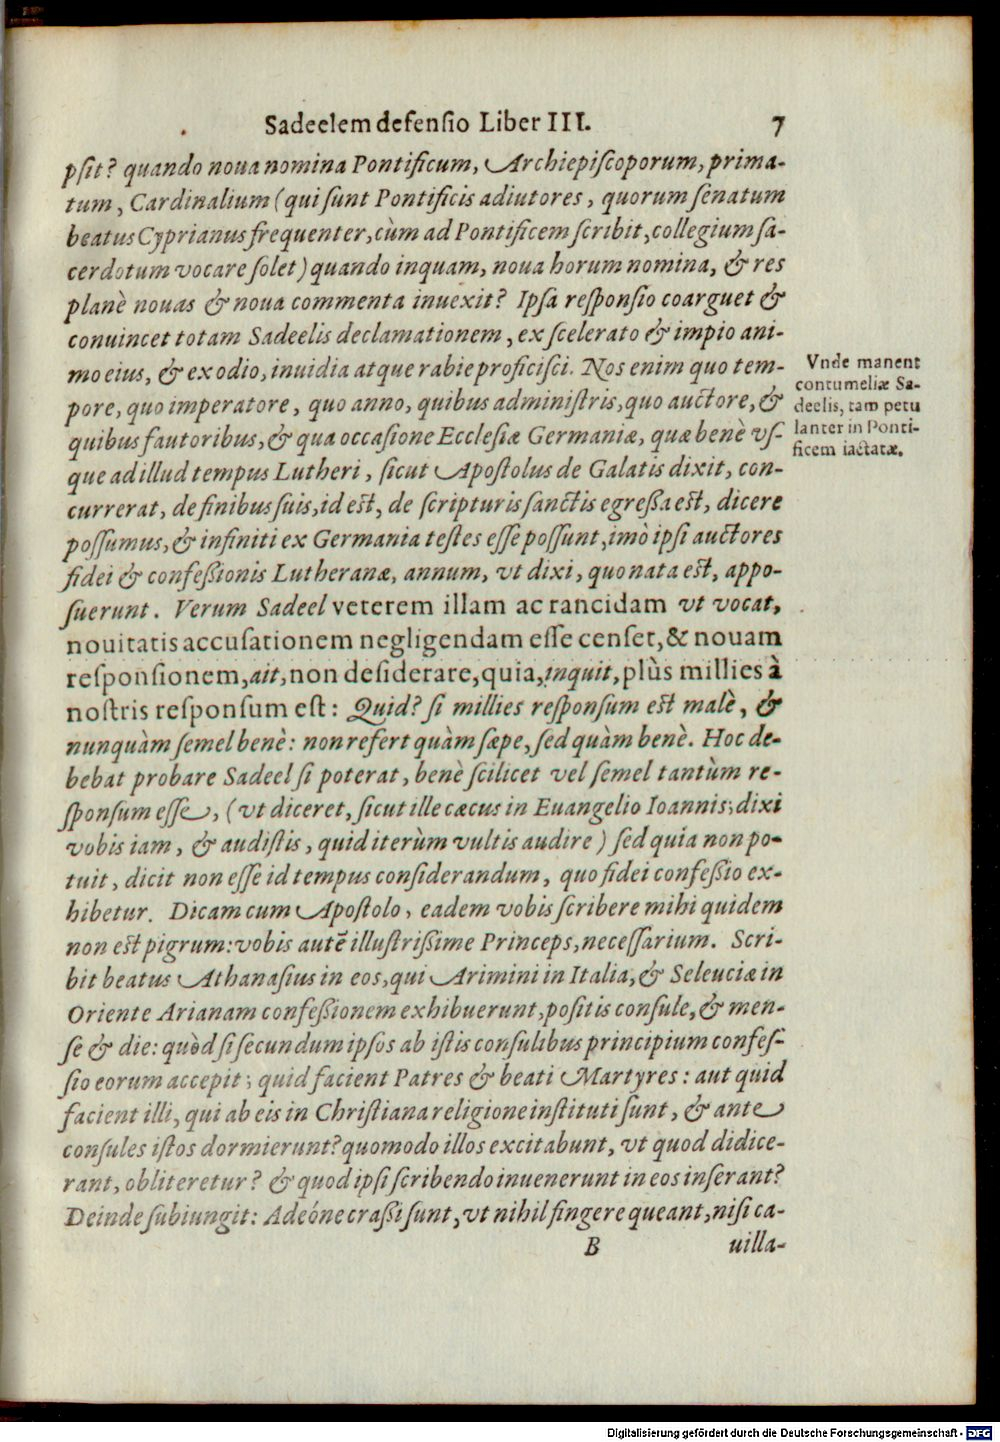 Sadeelem defensio Liber III. 7
psit? quando noua nomina Pontificum, Archiepiscoporum, prima-
tum, Cardinalium (qui sunt Pontificis adiutores, quorum senatum
beatus Cyprianus frequenter, cùm ad Pontificem scribit, collegium sa-
cerdotum vocare solet) quando inquam, noua horum nomina, & res
planè nouas & noua commenta inuexit? Ipsa responsio coarguet &
conuincet totam Sadeelis declamationem, ex scelerato & impio ani-
mo eius, & ex odio, inuidia atque rabie proficisci. Nos enim quo tem-
pore, quo imperatore, quo anno, quibus administris, quo auctore, &
quibus fautoribus, & qua occasione Ecclesiæ Germaniæ, quæ benè vs-
que ad illud tempus Lutheri, sicut Apostolus de Galatis dixit, con-
currerat, de finibus suis, id est, de scripturis sanctis egressa est, dicere
possumus, & infiniti ex Germania testes esse possunt, imò ipsi auctores
fidei & confessionis Lutheranæ, annum, vt dixi, quo nata est, appo-
suerunt. Verum Sadeel veterem illam ac rancidam vt vocat,
nouitatis accusationem negligendam esse censet, & nouam
responsionem, ait, non desiderare, quia, inquit, plùs millies à
nostris responsum est: Quid? si millies responsum est malè, &
nunquàm semel benè: non refert quàm sæpe, sed quàm benè. Hoc de-
bebat probare Sadeel si poterat, benè scilicet vel semel tantùm re-
sponsum esse, (vt diceret, sicut ille cæcus in Euangelio Ioannis; dixi
vobis iam, & audistis, quid iterùm vultis audire) sed quia non po-
tuit, dicit non esse id tempus considerandum, quo fidei confessio ex-
hibetur. Dicam cum Apostolo, eadem vobis scribere mihi quidem
non est pigrum: vobis autē illustrissime Princeps, necessarium. Scri-
bit beatus Athanasius in eos, qui Arimini in Italia, & Seleuciæ in
Oriente Arianam confessionem exhibuerunt, positis consule, & men-
se & die: quòd si secundum ipsos ab istis consulibus principium confes-
sio eorum accepit; quid facient Patres & beati Martyres: aut quid
facient illi, qui ab eis in Christiana religione instituti sunt, & ante
consules istos dormierunt? quomodo illos excitabunt, vt quod didice-
rant, obliteretur? & quod ipsi scribendo inuenerunt in eos inserant?
Deinde subiungit: Adeóne crassi sunt, vt nihil fingere queant, nisi ca-
B uilla-
Vnde manent
contumeliæ Sa-
deelis, tam petu
lanter in Ponti-
ficem iactatæ.
Digitalisierung gefördert durch die Deutsche Forschungsgemeinschaft - DFG